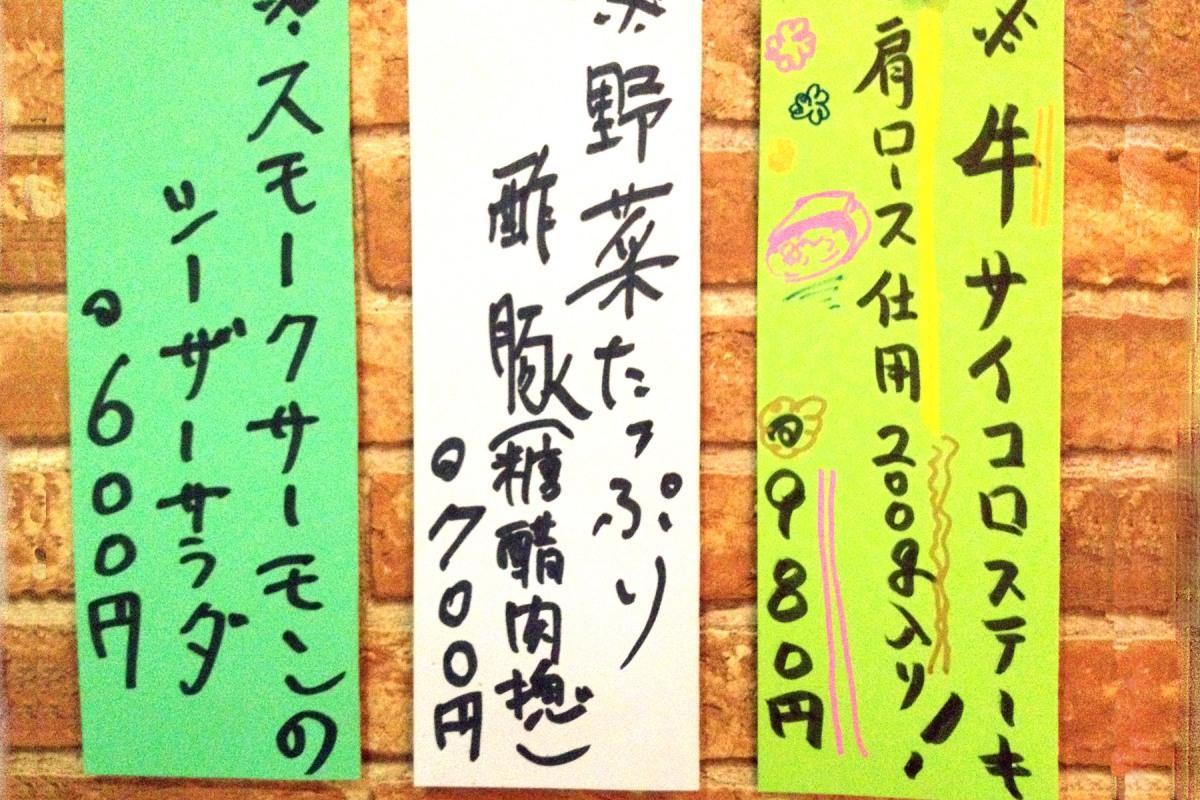 ※牛サイコロステーキ
肩ロース仕用200g入り!
@980円
※野菜たっぷり
酢豚(糖醋肉塊)
@700円
※スモークサーモンの
シーザーサラダ
@600円